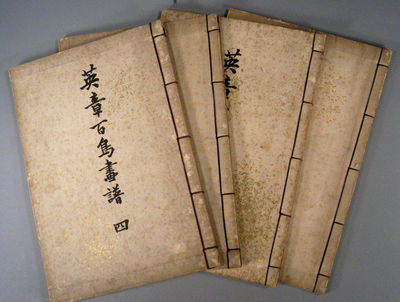 英章百鳥畫譜 四
英章